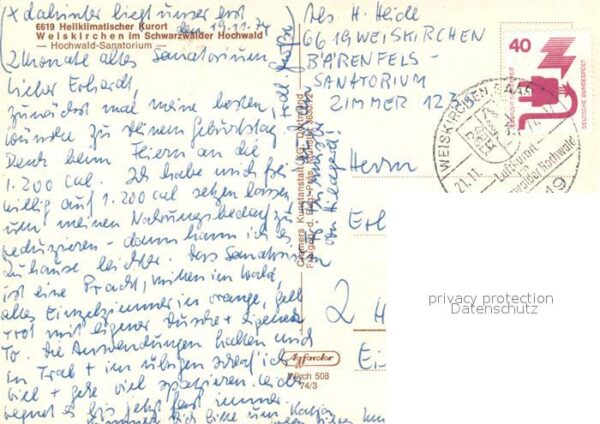 (x dahinter liegt unser erst
6619 Heilklimatischer Kurort
den 19.11.74
Weiskirchen im Schwarzwälder Hochwald
— Hochwald-Sanatorium —
2 Monate altes Sanatorium
Lieber Erhardt,
zunächst mal meine besten,
Wünsche zu Deinem Geburtstag.
Denk beim Feiern an die
1.200 cal. Ich habe mich frei
willig auf 1.200 cal setzen lassen
um meinen Nahrungsbedarf zu
reduzieren - dann kann ich es
zuhause leichter. Das Sanatorium
ist eine Pracht, mitten im Wald,
alles Einzelzimmer in orange, gelb
+ rot mit eigner Dusche + eigenem
To. Die Anwendungen halten mich
in Trab + im übrigen schlaf ich
viel + gehe viel spazieren. Leider
regnet es bis jetzt fast immer
bitte um
Cramers Kunstanstalt KG, Dortmund
von Hildegard!
Abs. H. Heide
6619 WEISKIRCHEN
BÄRENFELS-
SANATORIUM
ZIMMER 123
40
DEUTSCHE BUNDESPOST
WEISKIRCHEN SAAR
21.11.
Luftkurort
Herrn
Erh
2 H
Ei
Agfacolor
Wkrch 508
74/3
privacy protection
Datenschutz